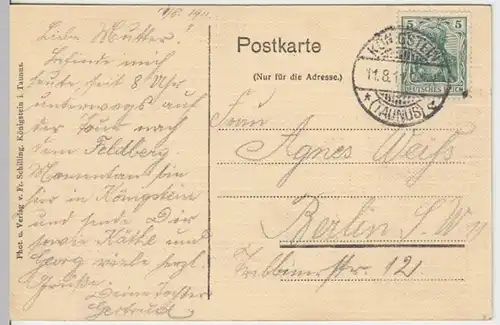 11/8. 1911.
Liebe Mutter!
Befinde mich
heute, seit 8 Uhr
unterwegs auf
der Tour nach
dem Feldberg.
Momentan bin
hier in Königstein
und sende Dir
sowie Käthe und
Georg viele herzl.
Grüße.
Deine Tochter
Gertrud
Phot. u. Verlag v. Fr. Schilling, Königstein i. Taunus.
Postkarte
(Nur für die Adresse.)
5 5
DEUTSCHES REICH
KÖNIGSTEIN
11.8.11
*(TAUNUS)*
Frau
Agnes Weiß
Berlin S.W. 11
12I